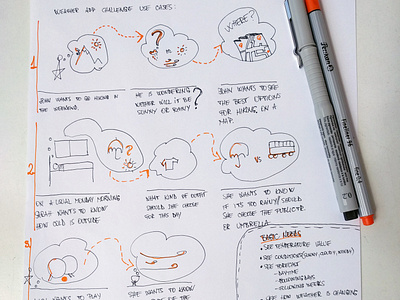 WEATHER APP CHALLENGE USE CASES:
WHERE?
?
VS
1
JOHN WANTS TO GO HIKING IN
THE WEEKEND.
HE IS WONDERING
WEATHER WILL IT BE
SUNNY OR RAINY?
JOHN WANTS TO SEE
THE BEST OPTIONS
FOR HIKING, ON A
MAP.
2
?
VS
ON A USUAL MONDAY MORNING
SARAH WANTS TO KNOW
HOW COLD IS OUTSIDE
WHAT KIND OF OUTFIT
SHOULD SHE CHOOSE
FOR THIS DAY
SHE WANTS TO KNOW
IF IT'S TOO RAINY/SHOULD
SHE CHOOSE THE PUBLIC TR.
OR UMBRELLA
3
WANTS TO PLAY
SHE WANTS TO KNOW
OF THE
BASIC NEEDS
• SEE TEMPERATURE VALUE
• SEE CONDITIONS (SUNNY, CLOUDY, WINDY)
• SEE FORECAST
- DAYTIME
- FOLLOWING DAYS
- FOLLOWING WEEKS
• SEE HOW WEATHER IS CHANGING
0.2